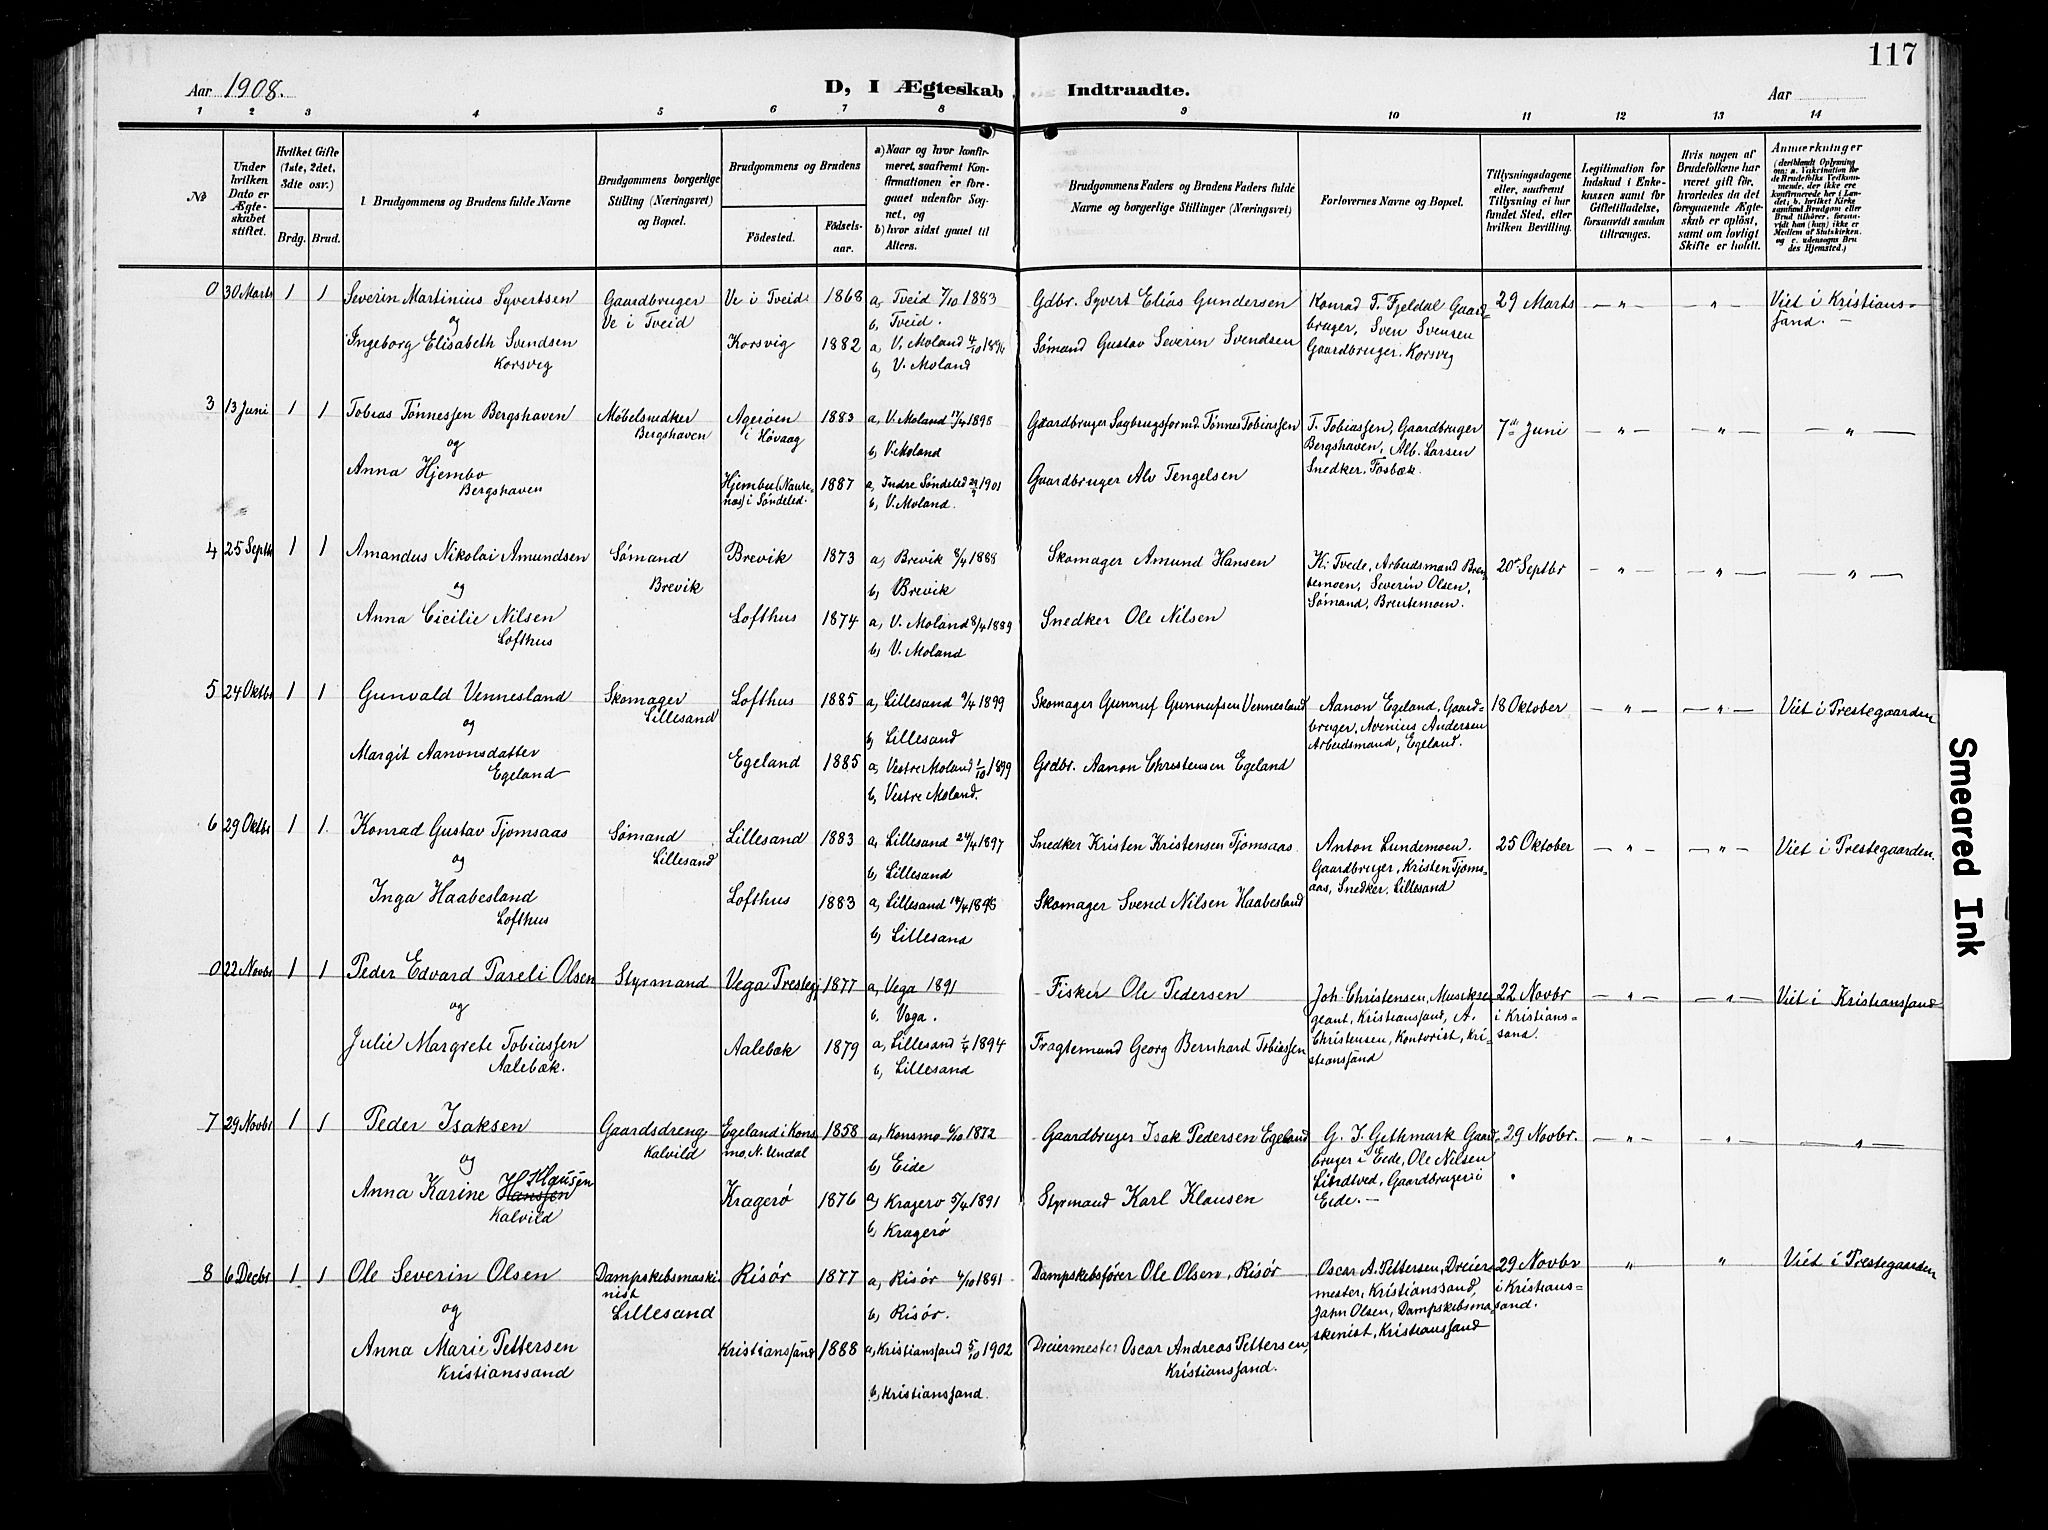 117
Aar 1908.
D, I Ægteskab Indtraadte.
Aar
1 2 3 4 5 6 7 8 9 10 11 12 13 14
No
Under hvilken Dato er Ægteskabet stiftet.
Hvilket Gifte (1ste, 2det, 3die osv.)
Brdg. Brud.
1. Brudgommens og Brudens fulde Navne
Brudgommens borgerlige Stilling (Næringsvei) og Bopæl.
Brudgommens og Brudens
Fødested.
Fødselsaar.
a) Naar og hvor konfirmeret, saafremt Konfirmationen er foregaaet udenfor Sognet, og
b) hvor sidst gaaet til Alters.
Brudgommens Faders og Brudens Faders fulde Navne og borgerlige Stillinger (Næringsvei)
Forlovernes Navne og Bopæl.
Tillysningsdagene eller, saafremt Tillysning ei har fundet Sted, efter hvilken Bevilling.
Legitimation for Indskud i Enkekassen samt for Giftetilladelse, forsaavidt saadan tiltrænges.
Hvis nogen af Brudefolkene har været gift før, hvorledes da det foregaaende Ægteskab er opløst, samt om lovligt Skifte er holdt.
Anmerkninger (deriblandt Oplysning om: a. Vakcination for de Brudefolks Vedkommende, der ikke ere konfirmerede her i Landet; b. hvilket Kirkesamfund Brudgom eller Brud tilhører, forsaavidt han (hun) ikke er Medlem af Statskirken. og c. udensogns Brudes Hjemsted.)
0 30 Marts 1 1 Severin Martinius Syvertsen Gaardbruger Ve i Tveid 1868 a, Tveid 7/10 1883 Gdbr. Syvert Elias Gundersen Konrad T. Fjeldal Gaard- 29 Marts — " — — " — Viet i Kristians-
og Ve i Tveid b, Tveid. bruger, Sven Svensen sand. —
Ingeborg Elisabeth Svendsen Korsvig 1882 a, V. Moland 4/10 1896 Sømand Gustav Severin Svendsen Gaardbruger. Korsvig
Korsvig b, V. Moland
3 13 Juni 1 1 Tobias Tønnessen Bergshaven Møbelsnedker Agerøen 1883 a, V. Moland 17/4 1898 Gaardbruger Sagbrugsformd Tønnes Tobiassen T. Tobiassen, Gaardbruger 7de Juni — " — — " — — " —
og Bergshaven i Høvaag b, V. Moland Bergshaven, Alb. Larsen
Anna Hjembo Hjembu (Naure- 1887 a, Indre Søndeled 29/9 1901 Gaardbruger Alv Tengelsen Snedker, Fosbæk.
Bergshaven næs) i Søndeled. b, V. Moland.
4 25 Septbr 1 1 Amandus Nikolai Amundsen Sømand Brevik 1873 a, Brevik 8/4 1888 Skomager Amund Hansen K. Tvede, Arbeidsmand Bren- 20 Septbr — " — — " — — " —
og Brevik b, Brevik temoen, Severin Olsen,
Anna Cicilie Nilsen Lofthus 1874 a, V. Moland 8/4 1889 Snedker Ole Nilsen Sømand, Brentemoen.
Lofthus b, V. Moland
5 24 Oktbr 1 1 Gunvald Vennesland Skomager Lofthus 1885 a, Lillesand 9/4 1899 Skomager Gunnuf Gunnufsen Vennesland Aanon Egeland, Gaard- 18 Oktober — " — — " — Viet i Prestegaarden
og Lillesand b, Lillesand bruger, Avenius Andersen
Margit Aanonsdatter Egeland 1885 a, Vestre Moland 1/10 1899 Grdbr. Aanon Christensen Egeland Arbeidsmand, Egeland.
Egeland b, Vestre Moland.
6 29 Oktbr 1 1. Konrad Gustav Tjomsaas Sømand Lillesand 1883 a, Lillesand 24/4 1897 Snedker Kristen Kristensen Tjomsaas. Anton Lundemoen. 25 Oktober — " — — " — Viet i Prestegaarden.
og Lillesand b, Lillesand Gaardbruger, Kristen Tjoms-
Inga Haabesland Lofthus 1883 a, Lillesand 18/4 1898 Skomager Svend Nilsen Haabesland aas, Snedker. Lillesand
Lofthus b, Lillesand
0 22 Novbr 1 1 Peder Edvard Pareli Olsen Styrmand Vega Prestegj 1877 a, Vega 1891 Fisker Ole Pedersen Joh. Christensen, Musikser- 22 Novbr — " — — " — Viet i Kristianssand
og b. Vega. geant, Kristianssand, A. i Kristians-
Julie Margrete Tobiassen Aalebæk 1879 a, Lillesand 1/4 1894 Fragtemand Georg Bernhard Tobiassen Christensen, Kontorist, Kri- sand.
Aalebæk. b, Lillesand stianssand
7 29 Novbr 1 1 Peder Isaksen Gaardsdreng Egeland i Kons- 1858 a, Konsmo 6/10 1872 Gaardbruger Isak Pedersen Egeland G. J. Gethmark Gaard- 29 Novbr. — " — — " — — " —
og Kalvild mo, N. Undal b, Eide bruger i Eide, Ole Nilsen
Anna Karine Hanssen Klausen Kragerø 1876 a, Kragerø 5/4 1891 Styrmand Karl Klausen Gaardbruger i
Kalvild b, Kragerø Eide. —
8 6 Decbr 1 1 Ole Severin Olsen Dampskibsmaski- Risør 1877 a, Risør 4/10 1891 Dampskibsfører Ole Olsen, Risør Oscar A. Pettersen, Dreier- 29 Novbr " " Viet i Prestegaarden
og nist b, Risør. mester, Kristianssand, i Kristians-
Lillesand Jahn Olsen, Dampskibsma- sand.
Anna Marie Pettersen Kristianssand 1888 a, Kristianssand 5/10 1902 Dreiermester Oscar Andreas Pettersen, skenist, Kristianssand
Kristianssand b, Kristianssand. Kristianssand.
Smeared Ink